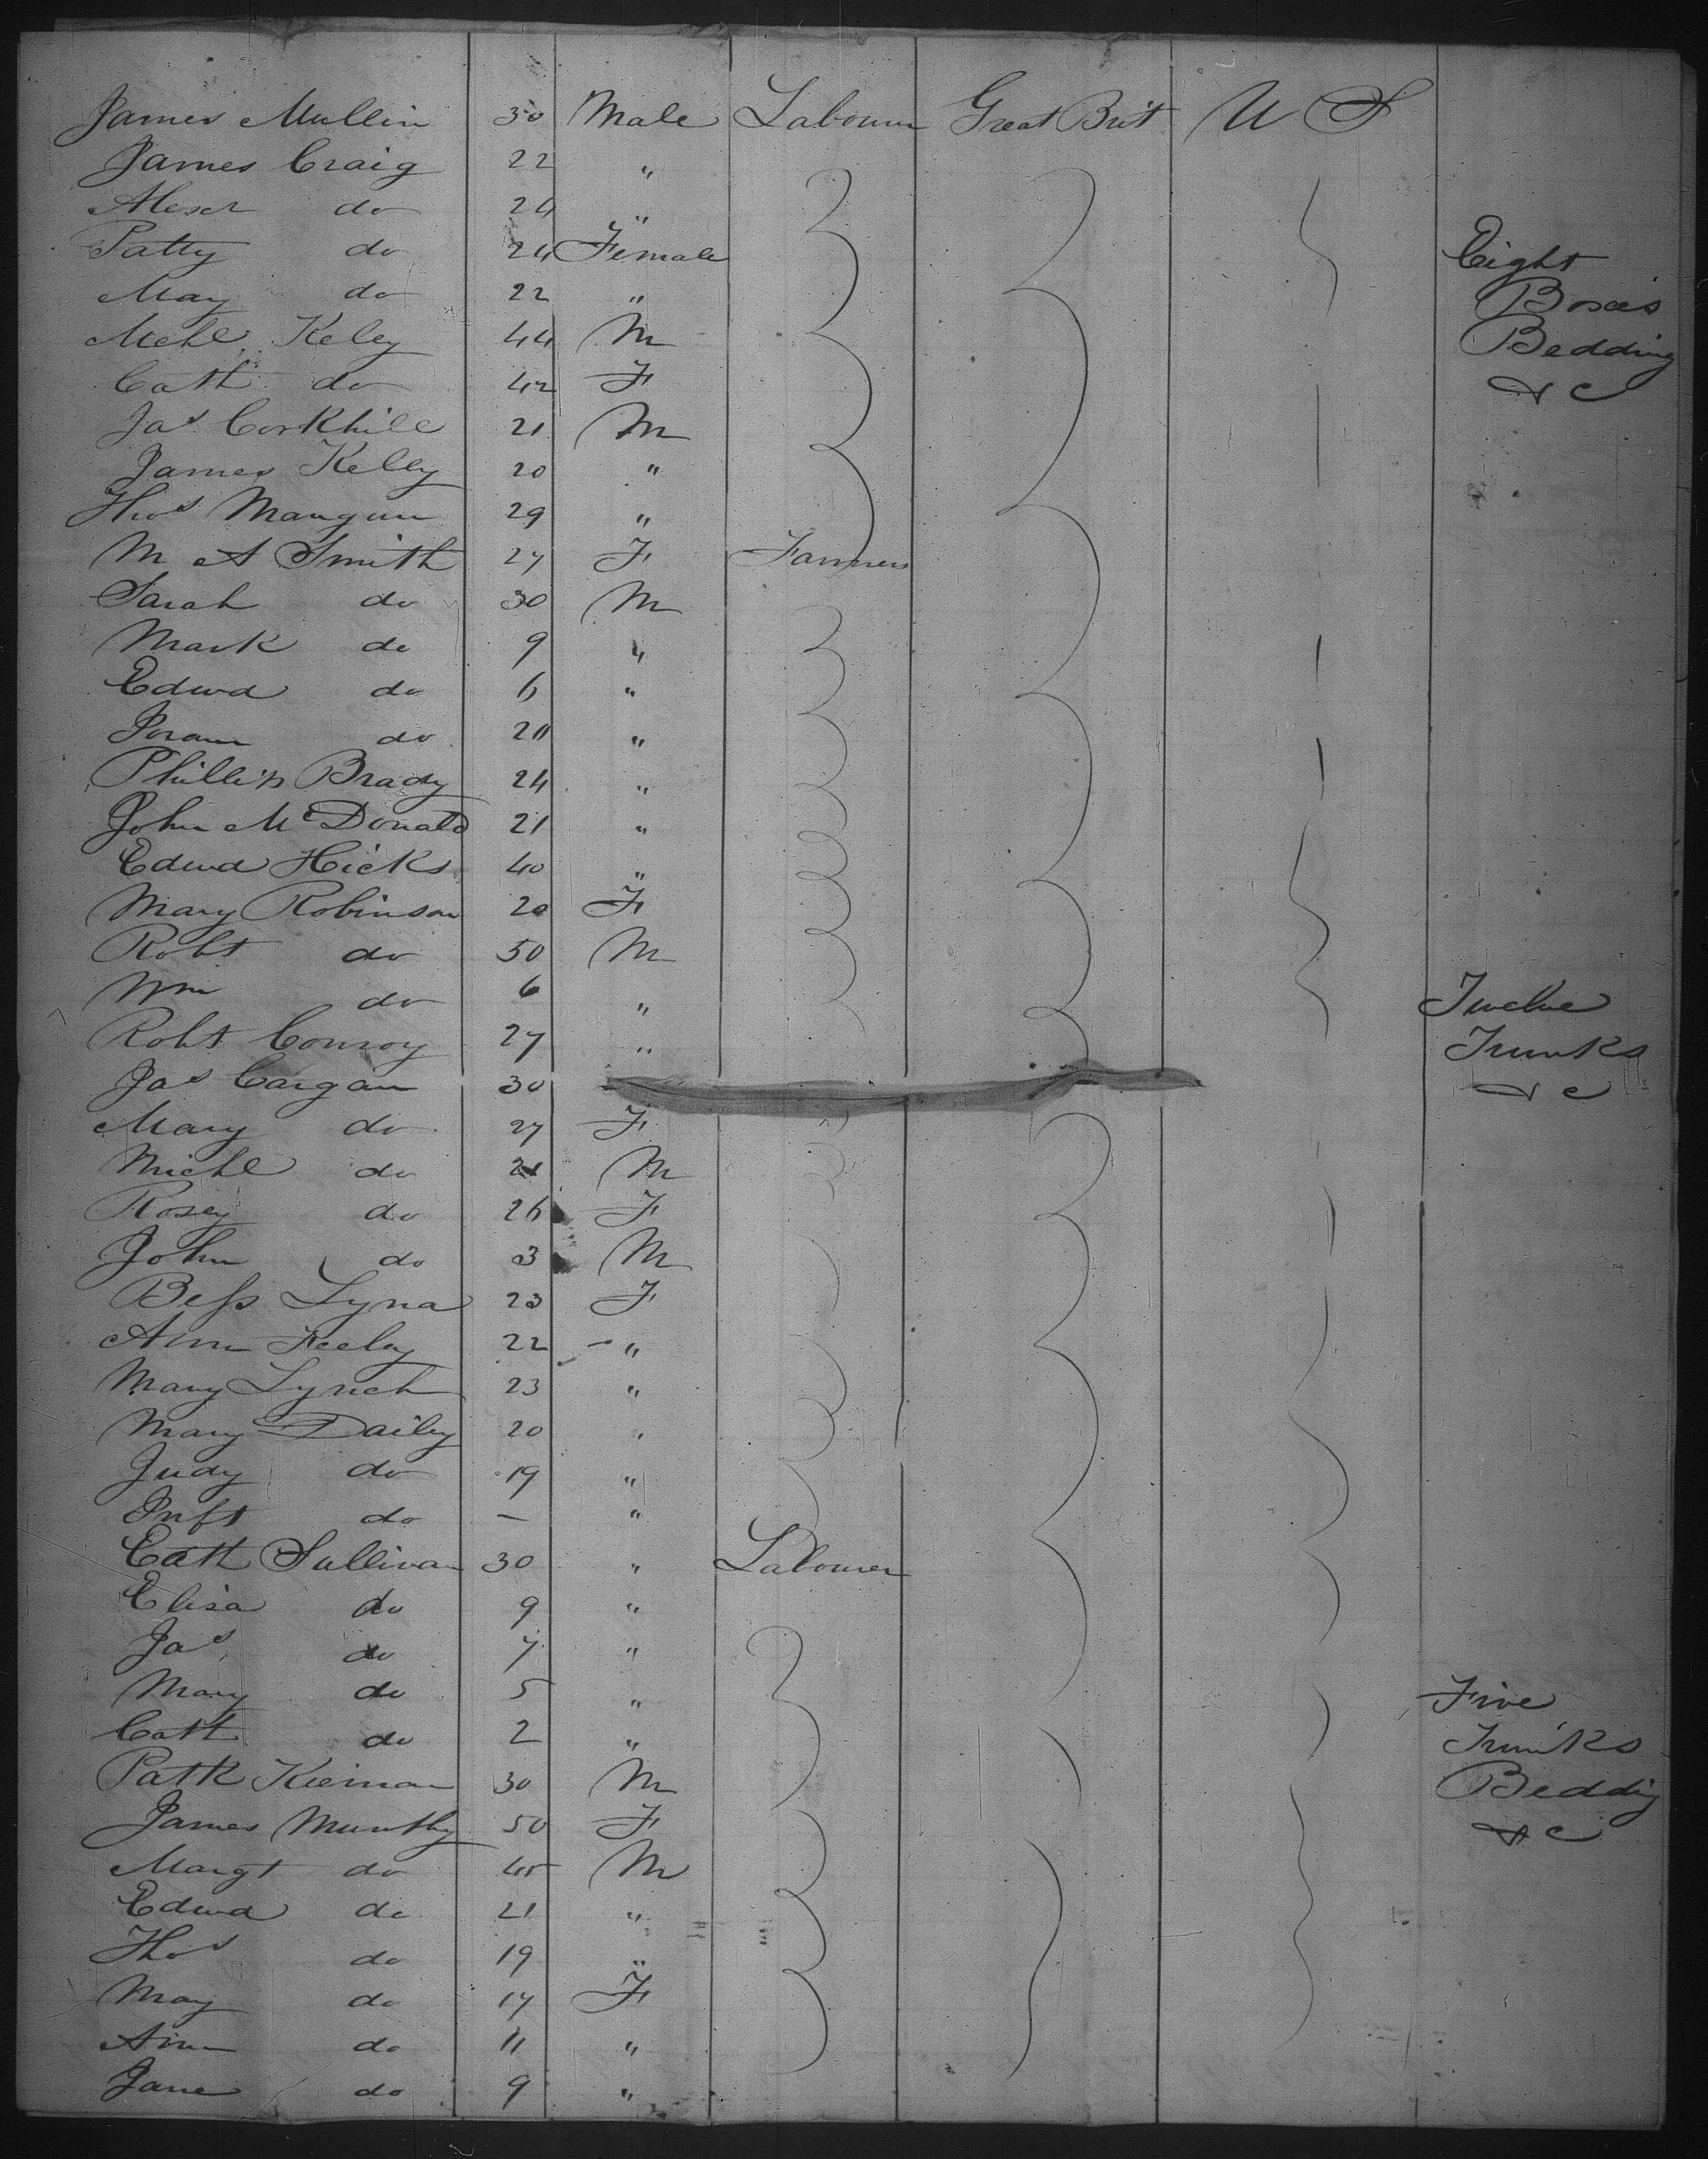 James Mullin 30 Male Labourer Great Brit U S
James Craig 22 "
Alexr do 24 "
Patty do 24 Female
May do 22 "
Michl Keley 44 M
Cath do 42 F
Jas Corkhill 21 M
James Kelly 20 "
Thos Mangum 29 "
M A Smith 27 F Farmers
Sarah do 30 M
Mark do 9 "
Edwd do 6 "
do "
Phillip Brady 24 "
John McDonald 21 "
Edwd Hicks 40 "
Mary Robinson 20 F
Robt do 50 M
Wm do 6 "
Robt Conroy 27 "
Jas Cargan 30
Mary do 27 F
Michl do 21 M
Rosey do 26 F
John do 3 M
Bess Lyna 23 F
Ann Feely 22 "
Mary Lynch 23 "
Mary Daily 20 "
Judy do 19 "
Inft do — "
Cath Sullivan 30 " Labourer
Elisa do 9 "
Jas do 7 "
Mary do 5 "
Cath do 2 "
Patk Kiernan 30 M
James Murthy 50 F
Margt do 45 M
Edwd do 21 "
Thos do 19 "
May do 17 F
Ann do 11 "
Jane do 9 "
Eight
Boxes
Bedding
& c
Twelve
Trunks
& c
Five
Trunks
Beddig
& c